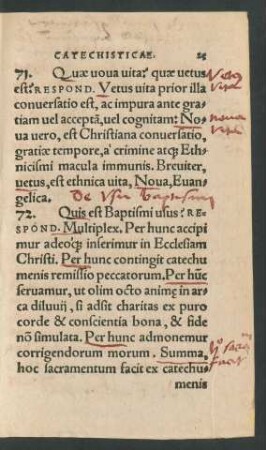 CATECHISTICAE. 25
71. Quæ noua uita? quæ uetus
est? RESPOND. Vetus uita prior illa
conuersatio est, ac impura ante gra
tiam uel acceptā, uel cognitam: No
ua vero, est Christiana conuersatio,
gratiæ tempore, à crimine atq; Eth
nicismi macula immunis. Breuiter,
uetus, est ethnica uita, Noua, Euan
gelica. De Usu baptismi
72. Quis est Baptismi usus? RE
SPOND. Multiplex. Per hunc accipi
mur adeoq; inserimur in Ecclesiam
Christi. Per hunc contingit catechu
menis remissio peccatorum. Per hūc
seruamur, ut olim octo animę in ar
ca diluuij, si adsit charitas ex puro
corde & conscientia bona, & fide
nō simulata. Per hunc admonemur
corrigendorum morum. Summa,
hoc sacramentum facit ex catechu
menis
Vetus
vita
noua
vita